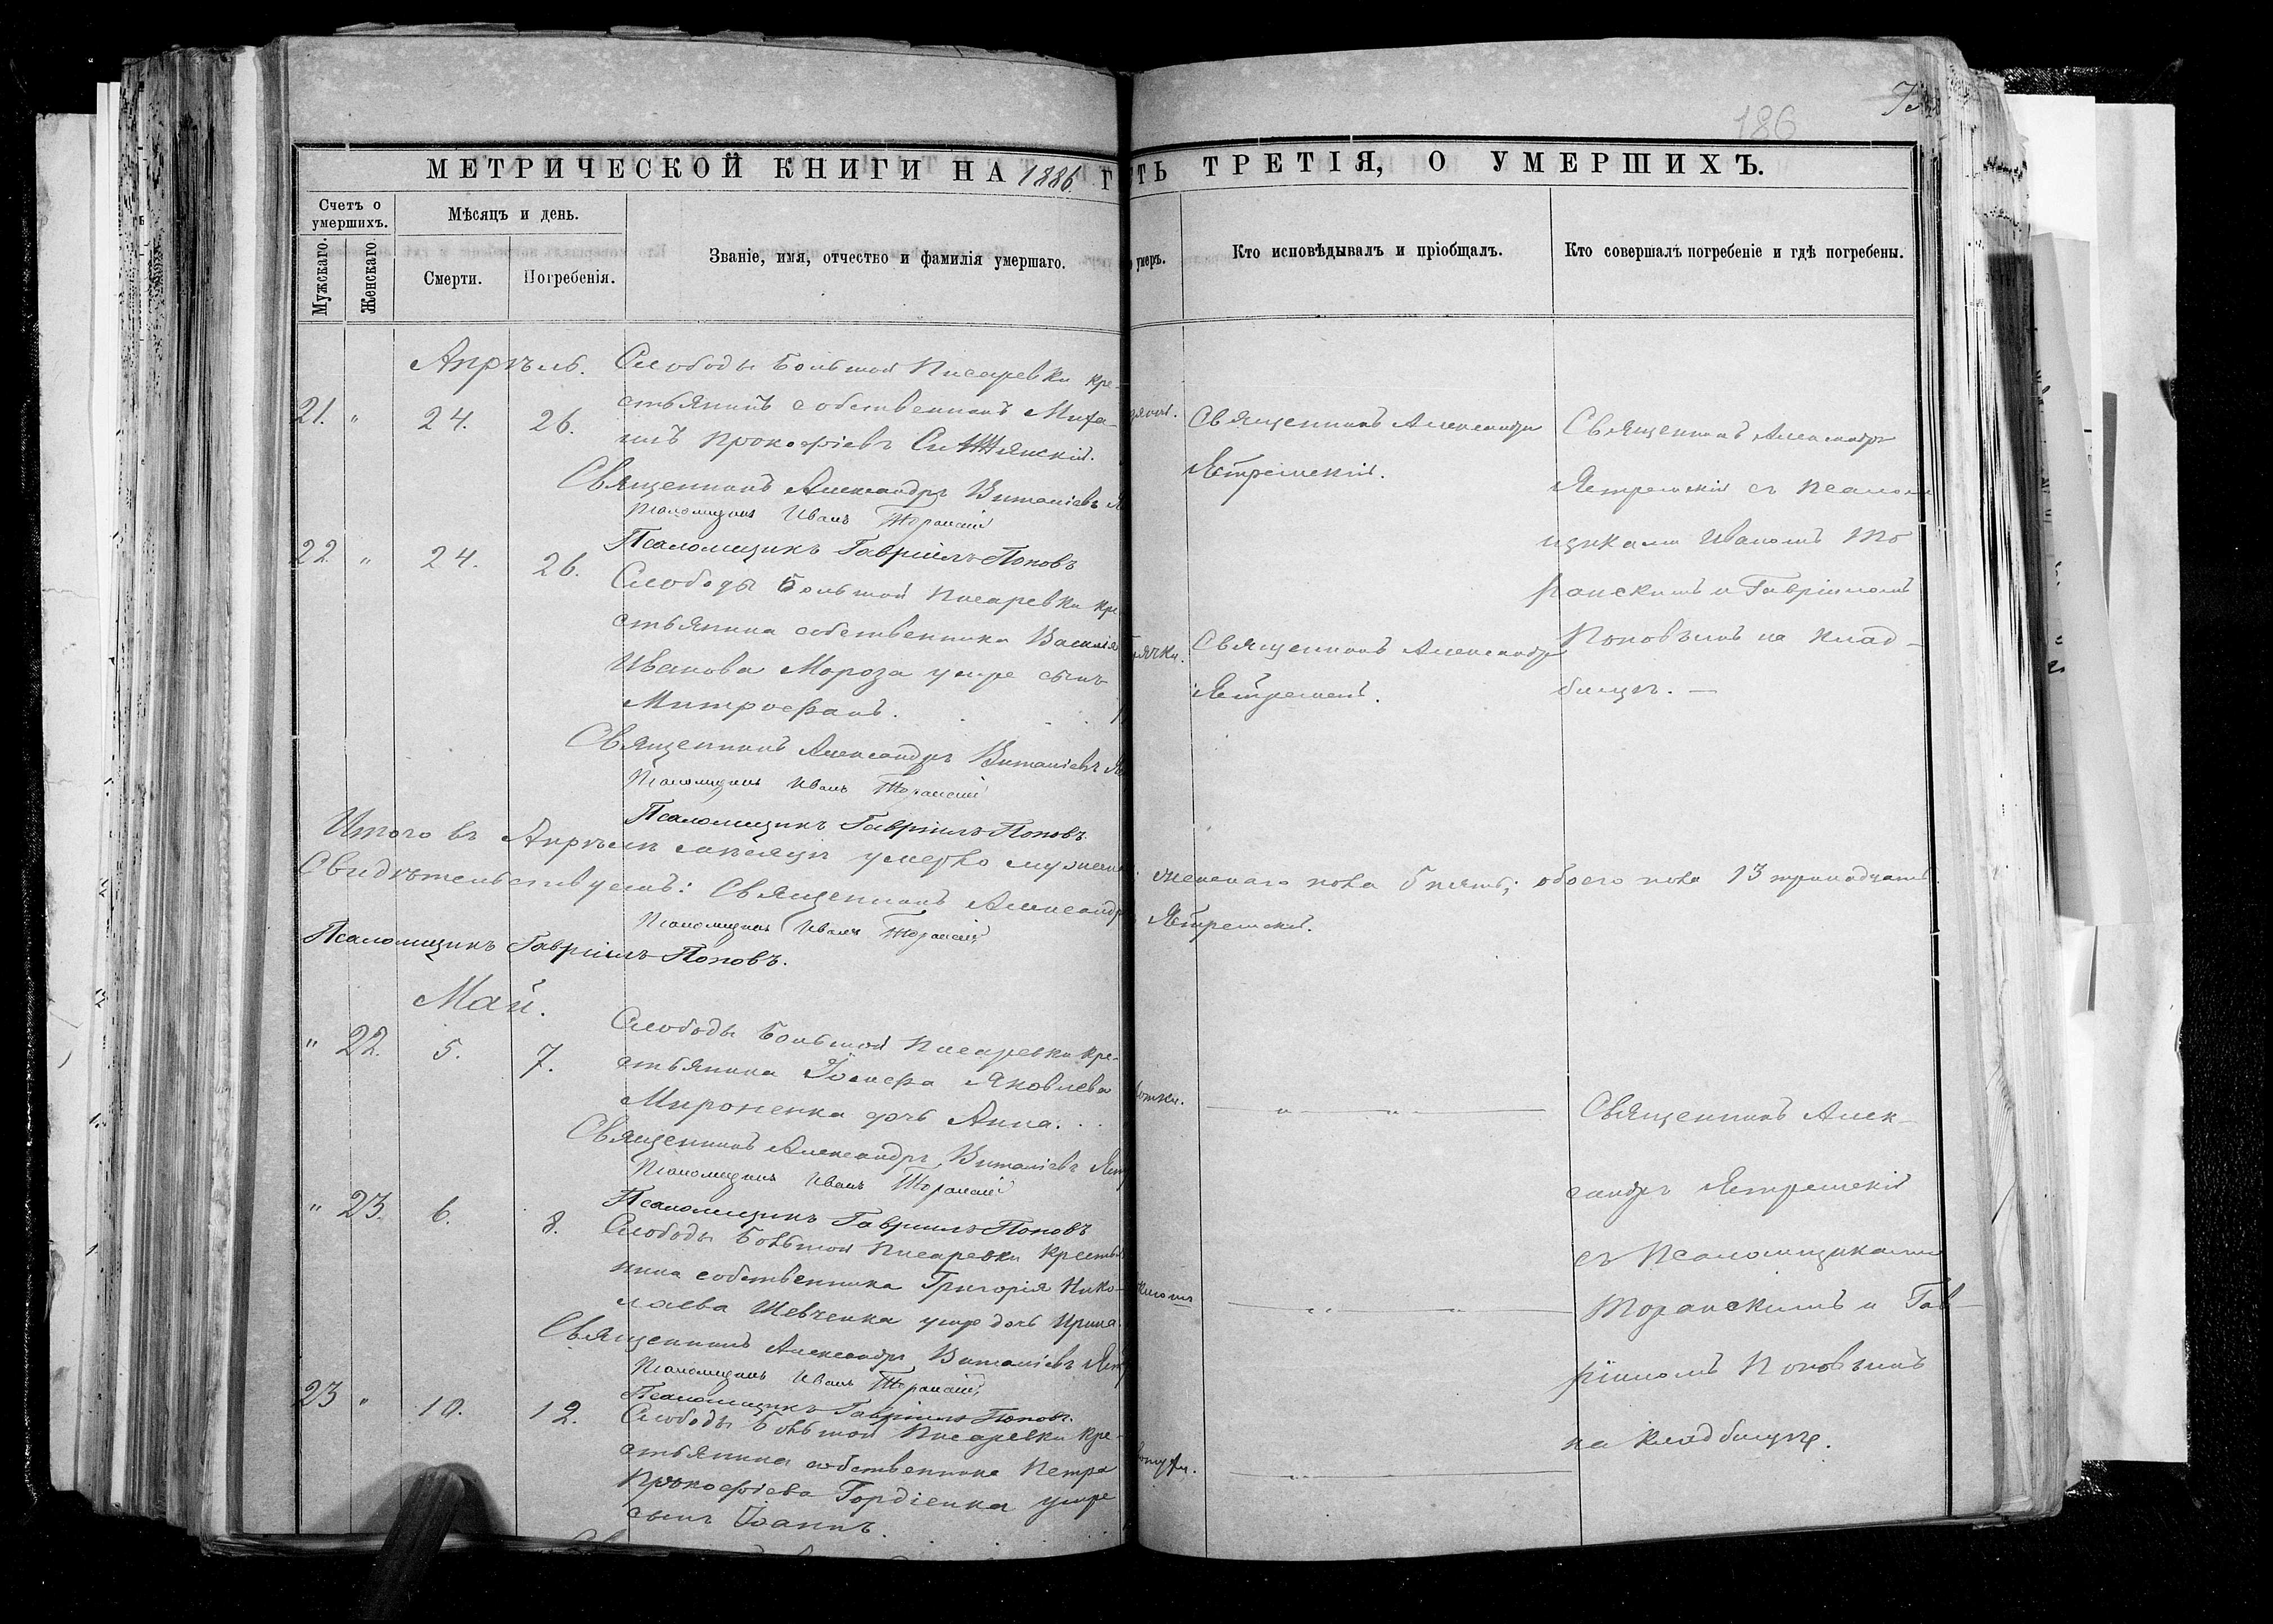 186
МЕТРИЧЕСКОЙ КНИГИ НА 1886 Г
ТЬ ТРЕТІЯ, О УМЕРШИХЪ.
Счетъ о умершихъ.
Мужскаго.
Женскаго.
Мѣсяцъ и день.
Смерти.
Погребенія.
Званіе, имя, отчество и фамилія умершаго.
умеръ.
Кто исповѣдывалъ и пріобщалъ.
Кто совершалъ погребеніе и гдѣ погребены.
Апрѣль.
21. " 24. 26.
Слободы Большой Писаревки кре-
стьянинъ собственникъ Миха-
илъ Прокофіевъ
Священникъ Александръ Виталіевъ
Псаломщикъ Иванъ Торанскій
Псаломщикъ Гавріилъ Поповъ
Священникъ Александръ
Ястремскій.
Священникъ Александръ
Ястремскій съ псалом
щиками Иваномъ То
ранскимъ и Гавріиломъ
Поповымъ на клад-
бищѣ. —
22 " 24. 26.
Слободы Большой Писаревки кре
стьянина собственника Василія
Иванова Мороза умре сынъ
Митрофанъ.
Священникъ Александръ Виталіевъ
Псаломщикъ Иванъ Торанскій
Псаломщикъ Гавріилъ Поповъ.
Священникъ Александръ
Ястремскій.
Итого въ Апрѣлѣ мѣсяцѣ умерло мужеска
женскаго пола 5 пять; обоего пола 13 тринадцать.
Свидѣтельствуемъ: Священникъ Александръ
Ястремскій.
Псаломщикъ Иванъ Торанскій
Псаломщикъ Гавріилъ Поповъ.
Май.
" 22. 5. 7.
Слободы Большой Писаревки кре-
стьянина Іосифа Яковлева
Мироненка дочь Анна.
Священникъ Александръ Виталіевъ
Псаломщикъ Иванъ Торанскій
Псаломщикъ Гавріилъ Поповъ
Священникъ Алек-
сандръ Ястремскій
съ Псаломщиками
Торанскимъ и Гав-
ріиломъ Поповымъ
на кладбищѣ.
" 23. 6. 8.
Слободы Большой Писаревки крестья
нина собственника Григорія Нико-
лаева Шевченка умре дочь Ирина.
Священникъ Александръ Виталіевъ
Псаломщикъ Иванъ Торанскій
Псаломщикъ Гавріилъ Поповъ.
23 " 10. 12.
Слободы Большой Писаревки кре-
стьянина собственника Петра
Прокофіева Гордіенка умре
сынъ Іоаннъ.